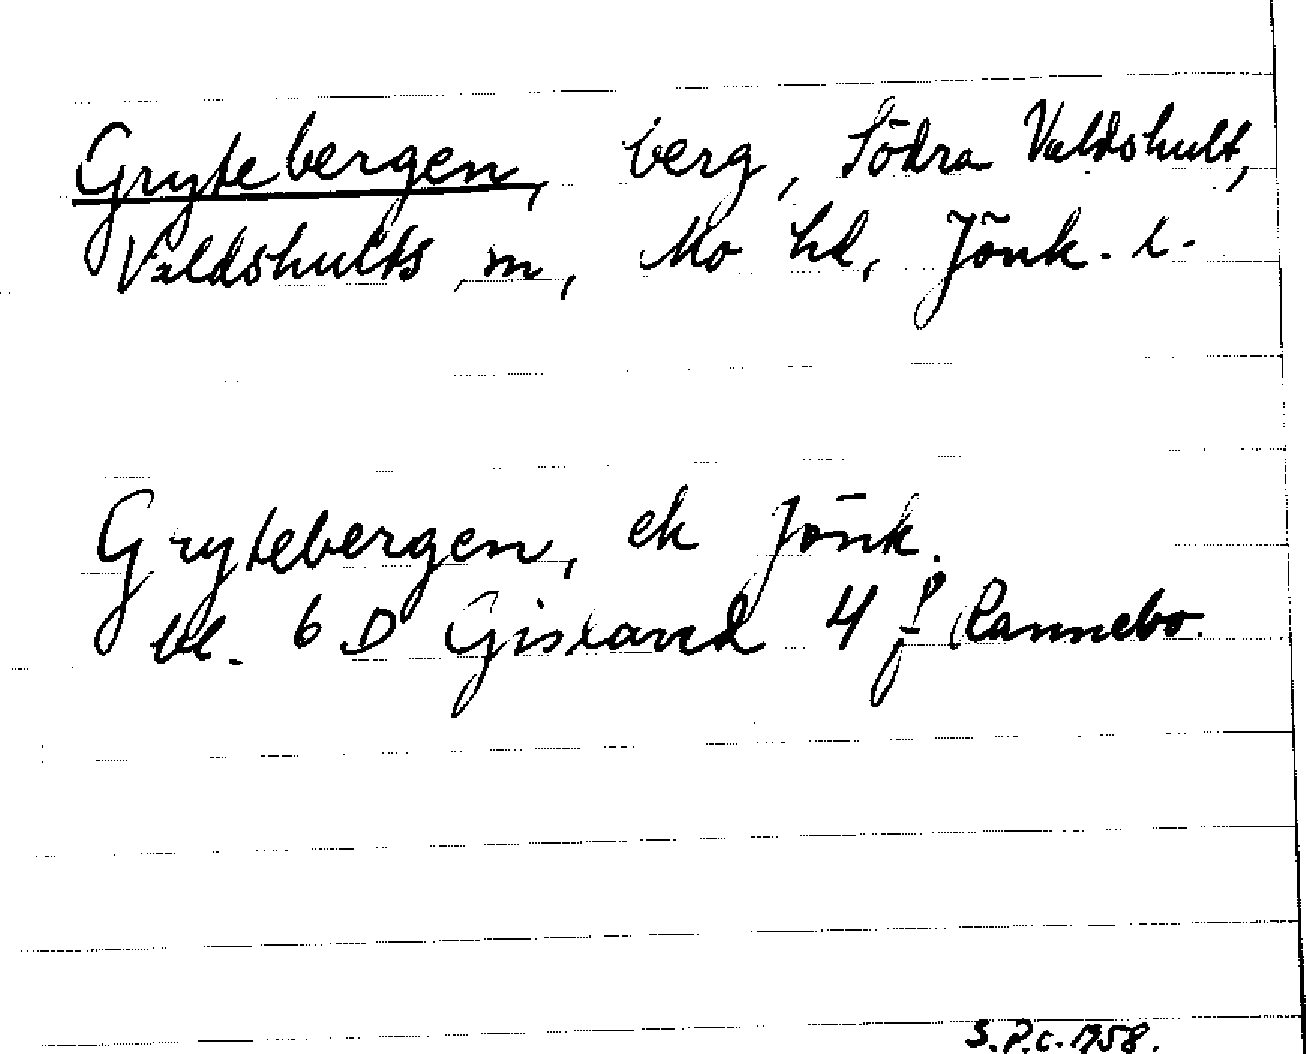 Grytebergen, berg, Södra Valdshult,
Valdshults sn, Mo hd, Jönk. l.
Grytebergen, ek Jönk.
bl. 6 D Gislaved 4 f Rannebo.
S.P.C. 1958.